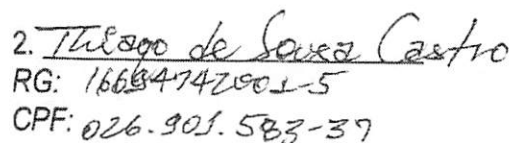 2. Thiago de Sousa Castro
RG: 16694742001-5
CPF: 026.901.583-37